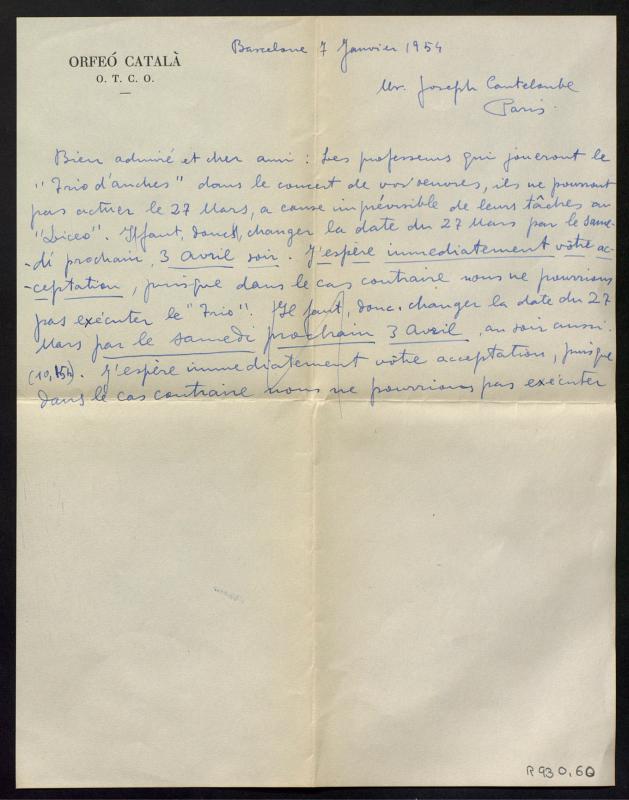 ORFEÓ CATALÀ
O. T. C. O.
Barcelone 7 Janvier 1954
Mr. Joseph Canteloube
Paris.
Bien admiré et cher ami : Les professeurs qui joueront le
"Trio d'anches" dans le concert de vos oeuvres, ils ne pourront
pas actuer le 27 Mars, a cause imprévisible de leurs tâches au
"Liceo". Il faut, donc, changer la date du 27 Mars par le same-
-di prochain, 3 avril soir. J'espère immediatement vôtre ac-
-ceptation, puisque dans le cas contraire nous ne pourrions
pas exécuter le "Trio". Il faut, donc, changer la date du 27
Mars par le samedi prochain 3 Avril, au soir aussi.
(10,15h). J'espère immediatement vôtre acceptation, puisque
dans le cas contraire nous ne pourrions pas exécuter
R 930,60